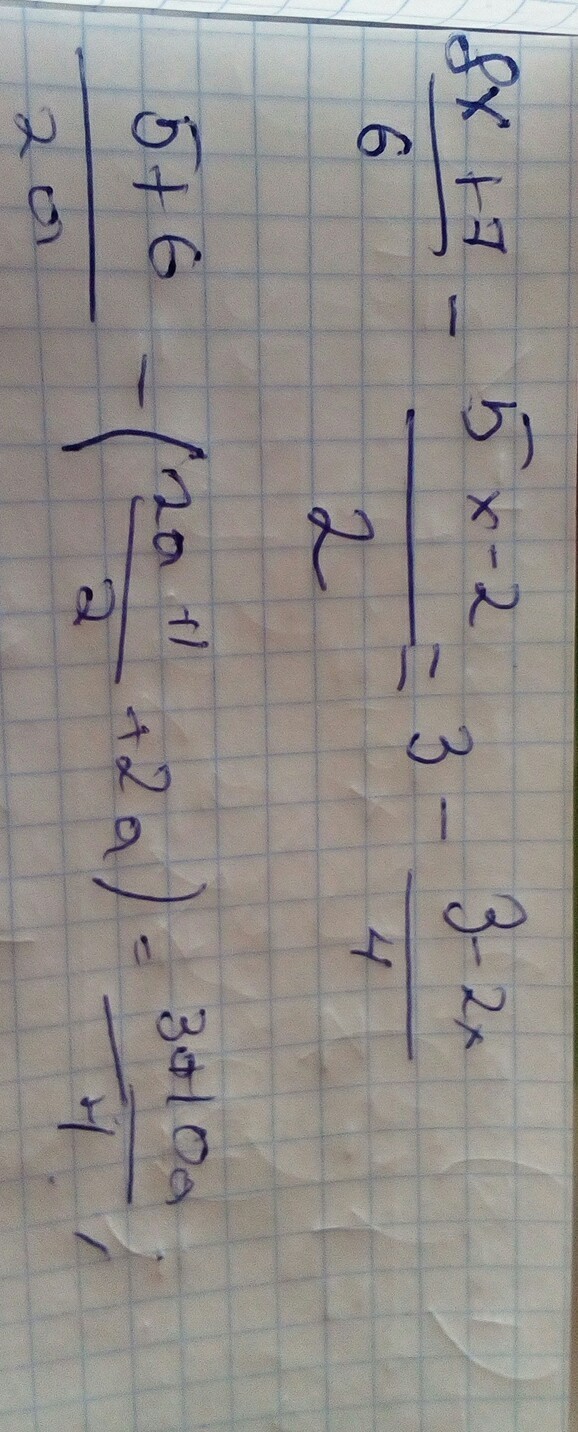 (8x+7)/6 - (5x-2)/2 = 3 - (3-2x)/4
(5+6)/(2a) - ((2a+1)/2 + 2a) = (3+10a)/4;